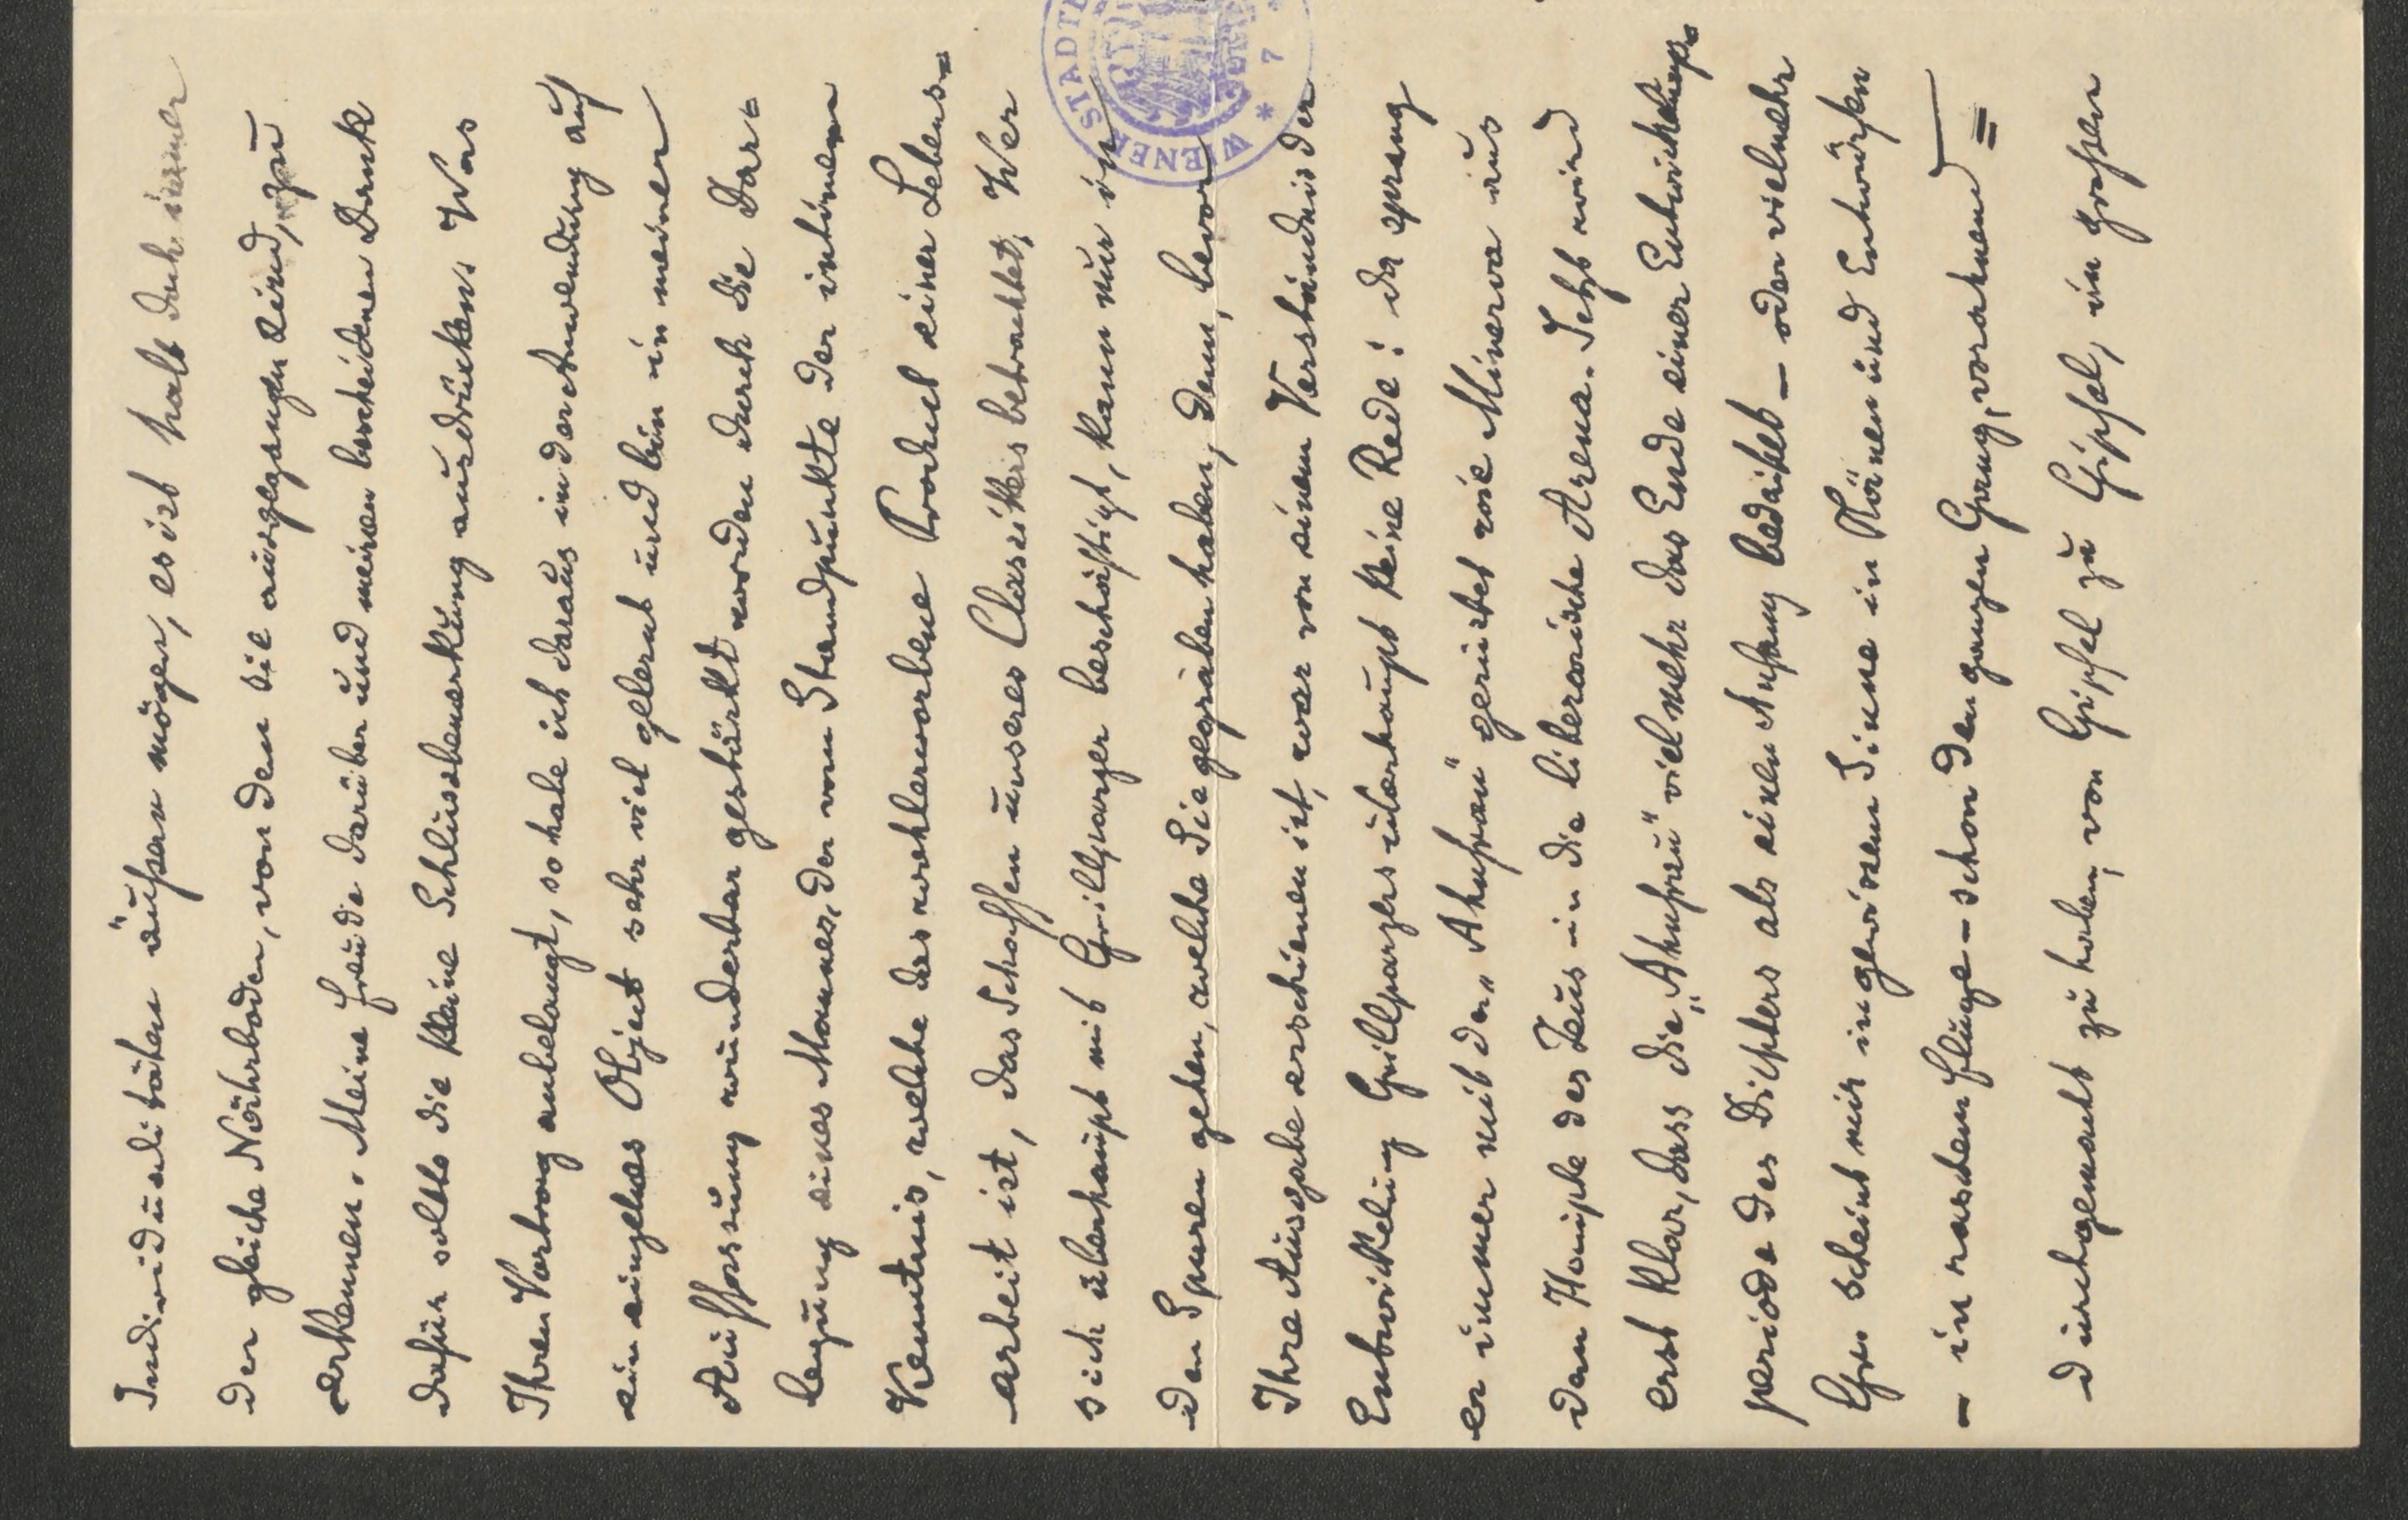 Individualitäten äußern mögen, es ist halt doch immer
der gleiche Nährboden, von dem sie ausgegangen sind, zu
erkennen. Meine Freude darüber und meinen bescheidenen Dank
dafür sollte die kleine Schlussbemerkung ausdrücken. Was
Ihren Vortrag anbelangt, so habe ich daraus in der Anwendung auf
ein einzelnes Object sehr viel gelernt und bin in meiner
Auffassung wunderbar gestärkt worden durch die Dar=
legung eines Mannes, der vom Standpunkte der intimen
Kenntnis, welche das wohlerworbene Product einer Lebens=
arbeit ist, das Schaffen unseres Classikers betrachtet. Wer
sich überhaupt mit Grillparzer beschäftigt, kann nur in
den Spuren gehen, welche Sie gegraben haben, denn, bevor
Ihre Ausgabe erschienen ist, war von einem Verständnis der
Entwickelung Grillparzers überhaupt keine Rede: da sprang
er immer mit der „Ahnfrau" gerüstet wie Minerva aus
dem Haupte des Zeus in die literarische Arena. Jetzt wird
erst klar, dass die „Ahnfrau" vielmehr das Ende einer Entwickelungs=
periode des Dichters als einen Anfang bedeutet – oder vielmehr
Gr. scheint mir in gewissem Sinne in Plänen und Entwürfen
– in raschem Fluge – schon den ganzen Gang, vorahnend
durchgemacht zu haben, von Gipfel zu Gipfel, in großen
WIENER STADT
* 7 *